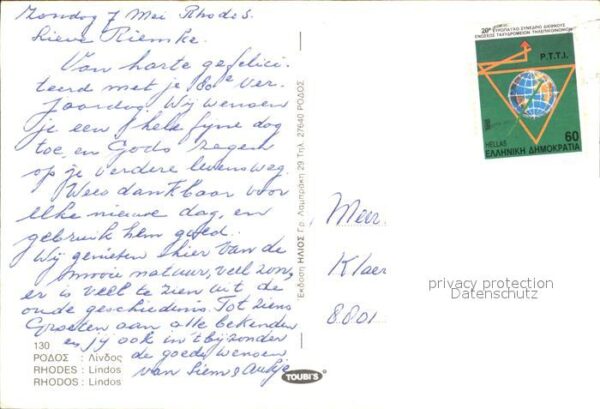 Zondag 7 Mei Rhodes.
Lieve Riemke.
Van harte gefelici-
teerd met je 80e ver-
jaardag. Wij wensen
je een hele fijne dag
toe, en Gods zegen
op je verdere levensweg.
Wees dankbaar voor
elke nieuwe dag, en
gebruik hem goed.
Wij genieten hier van de
mooie natuur, veel zon,
er is veel te zien uit de
oude geschiedenis. Tot ziens
Groeten aan alle bekenden
en jy ook in 't bijzonder
de goede wensen
van Siem &
130
ΡΟΔΟΣ : Λίνδος
RHODES : Lindos
RHODOS : Lindos
Έκδοση ΗΛΙΟΣ Γρ. Λαμπράκη 29 Τηλ. 27640 ΡΟΔΟΣ
TOUBI'S
28ο ΕΥΡΩΠΑΪΚΟ ΣΥΝΕΔΡΙΟ ΔΙΕΘΝΟΥΣ
ΕΝΩΣΕΩΣ ΤΑΧΥΔΡΟΜΕΙΩΝ ΤΗΛΕΠΙΚΟΙΝΩΝΙΩΝ
P.T.T.I.
HELLAS 60
ΕΛΛΗΝΙΚΗ ΔΗΜΟΚΡΑΤΙΑ
Klaer
8801
privacy protection
Datenschutz